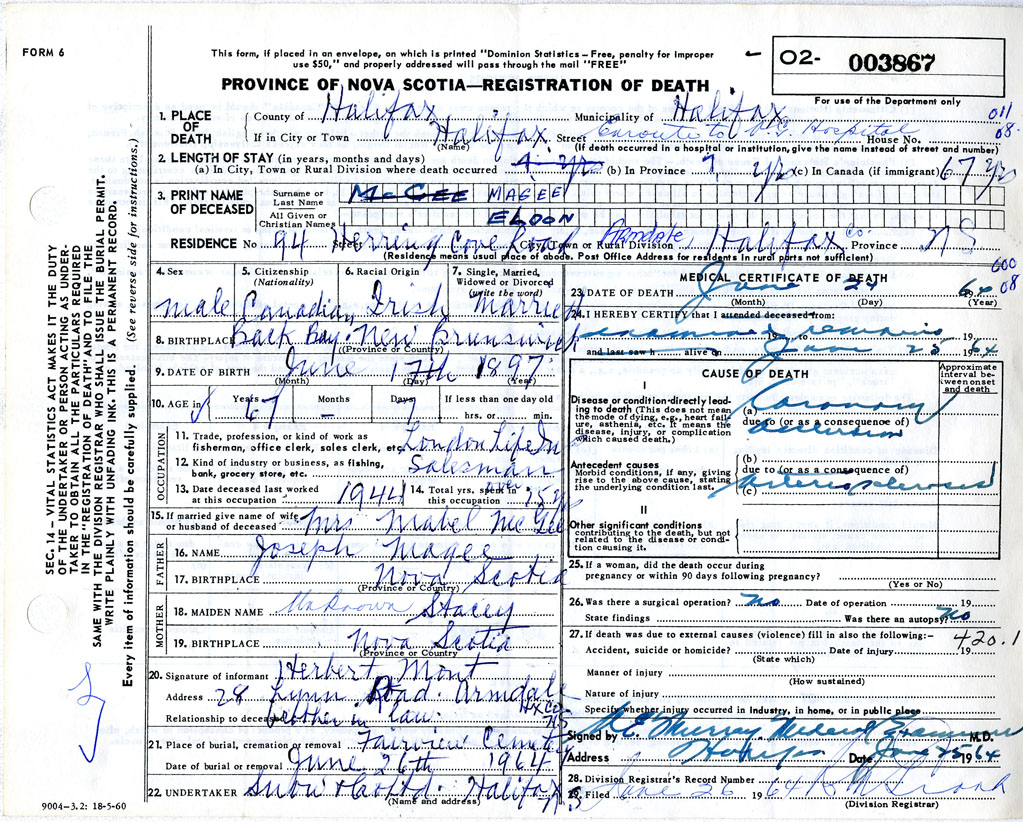 FORM 6
This form, if placed in an envelope, on which is printed "Dominion Statistics – Free, penalty for improper
use $50," and properly addressed will pass through the mail "FREE"
O2- 003867
For use of the Department only
PROVINCE OF NOVA SCOTIA—REGISTRATION OF DEATH
011
08.
1. PLACE OF DEATH
County of Halifax Municipality of Halifax
If in City or Town Halifax Street Enroute to V.G. Hospital House No.
(Name) (If death occurred in a hospital or institution, give the name instead of street and number)
2. LENGTH OF STAY (in years, months and days)
(a) In City, Town or Rural Division where death occurred yrs (b) In Province yrs (c) In Canada (if immigrant) 67 yrs
3. PRINT NAME OF DECEASED
Surname or Last Name McGEE MAGEE
All Given or Christian Names ELDON
RESIDENCE No 94 Street Herring Cove Road City, Town or Rural Division Armdale, Halifax Co. Province N S
(Residence means usual place of abode. Post Office Address for residents in rural parts not sufficient)
000
08
4. Sex
male
5. Citizenship
(Nationality)
Canadian
6. Racial Origin
Irish
7. Single, Married,
Widowed or Divorced
(write the word)
Married
8. BIRTHPLACE Back Bay. New Brunswick
(Province or Country)
9. DATE OF BIRTH June 17th 1897
(Month) (Day) (Year)
10. AGE in Years Months Days If less than one day old
67 – 7 hrs. or min.
OCCUPATION
11. Trade, profession, or kind of work as
fisherman, office clerk, sales clerk, etc. London Life In
12. Kind of industry or business, as fishing,
bank, grocery store, etc. Salesman
13. Date deceased last worked
at this occupation 1944
14. Total yrs. spent in
this occupation over 25 yrs
15. If married give name of wife
or husband of deceased Mrs Mabel McGee
FATHER
16. NAME Joseph Magee
17. BIRTHPLACE Nova Scotia
(Province or Country)
MOTHER
18. MAIDEN NAME Unknown Stacey
19. BIRTHPLACE Nova Scotia
(Province or Country
20. Signature of informant Herbert Mont
Address 28 Lynn Road. Armdale
Hx Co
NS
Relationship to deceased brother in law.
21. Place of burial, cremation or removal Fairview Cemetery
Date of burial or removal June 26th 1964
22. UNDERTAKER Snow & Co Ltd. Halifax
N.S
(Name and address)
MEDICAL CERTIFICATE OF DEATH
23. DATE OF DEATH June 24 64
(Month) (Day) (Year)
24. I HEREBY CERTIFY that I attended deceased from:
examined remains 19
and last saw h alive on June 25 1964
CAUSE OF DEATH
Approximate
interval be-
tween onset
and death
I
Disease or condition directly lead-
ing to death (This does not mean
the mode of dying, e.g., heart fail-
ure, asthenia, etc. It means the
disease, injury, or complication
which caused death.)
(a) Coronary
due to (or as a consequence of)
occlusion
Antecedent causes
Morbid conditions, if any, giving
rise to the above cause, stating
the underlying condition last.
(b)
due to (or as a consequence of)
(c) Arteriosclerosis
II
Other significant conditions
contributing to the death, but not
related to the disease or condi-
tion causing it.
25. If a woman, did the death occur during
pregnancy or within 90 days following pregnancy?
(Yes or No)
26. Was there a surgical operation? No Date of operation 19
State findings Was there an autopsy? No
27. If death was due to external causes (violence) fill in also the following:– 420.1
Accident, suicide or homicide? Date of injury 19
(State which)
Manner of injury
(How sustained)
Nature of injury
Specify whether injury occurred in industry, in home, or in public place
Signed by Murray Medical Examiner M.D.
Address Halifax Date June 25 1964
28. Division Registrar's Record Number
29. Filed June 26 1964
(Division Registrar)
SEC. 14 – VITAL STATISTICS ACT MAKES IT THE DUTY
OF THE UNDERTAKER OR PERSON ACTING AS UNDER-
TAKER TO OBTAIN ALL THE PARTICULARS REQUIRED
IN THE "REGISTRATION OF DEATH" AND TO FILE THE
SAME WITH THE DIVISION REGISTRAR WHO SHALL ISSUE THE BURIAL PERMIT.
WRITE PLAINLY WITH UNFADING INK. THIS IS A PERMANENT RECORD.
Every item of information should be carefully supplied. (See reverse side for instructions.)
9004–3.2: 18-5-60